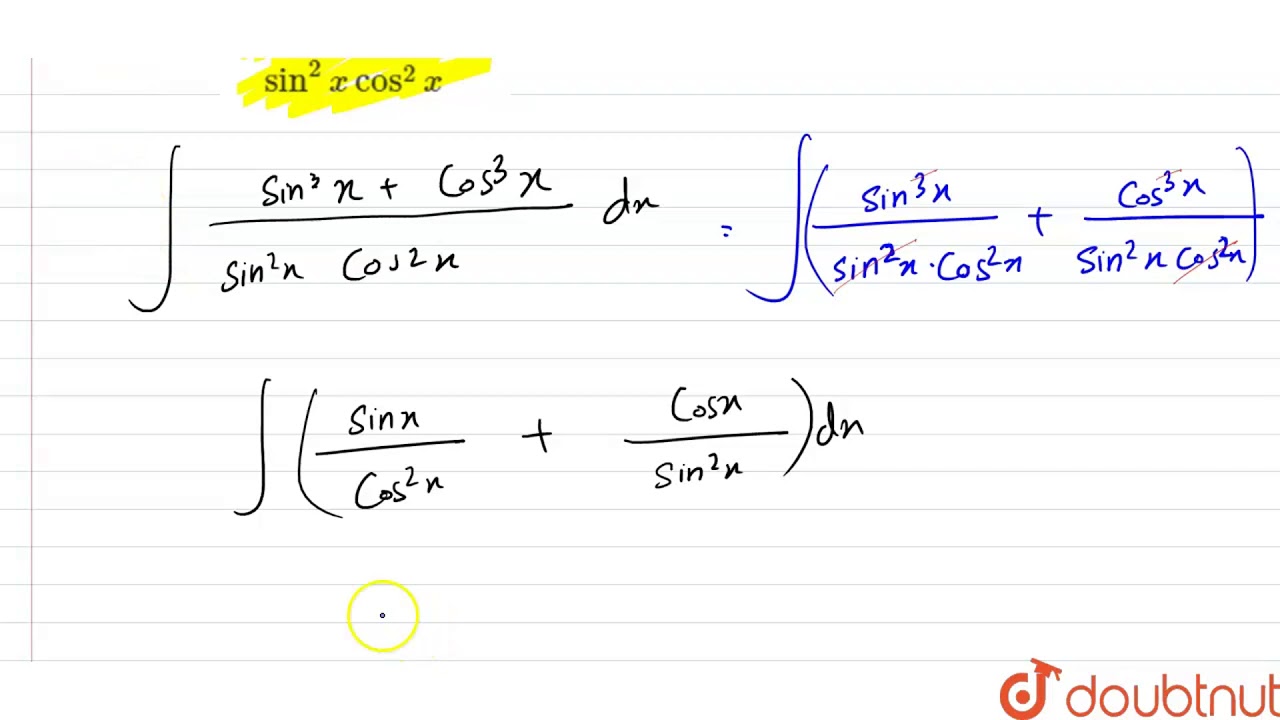 sin² x cos² x
∫ (sin³ x + cos³ x)/(sin²x cos²x) dx = ∫ (sin³x/(sin²x·cos²x) + cos³x/(sin²x cos²x))
∫ (sinx/cos²x + cosx/sin²x) dx
doubtnut